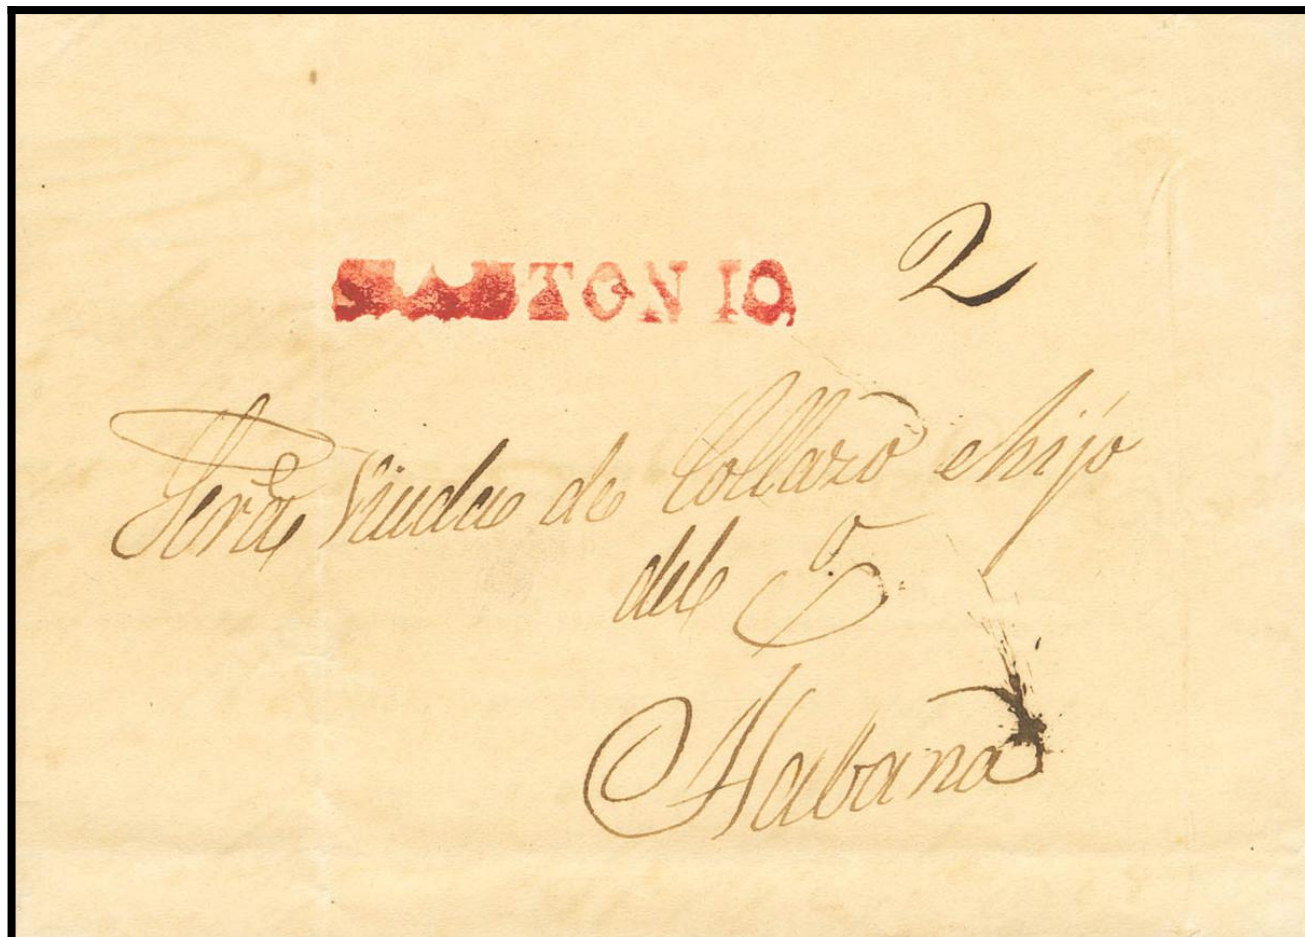 S.ANTONIO,
2
Sora. Viuda de Collazo e hijo
del Co.
Habana